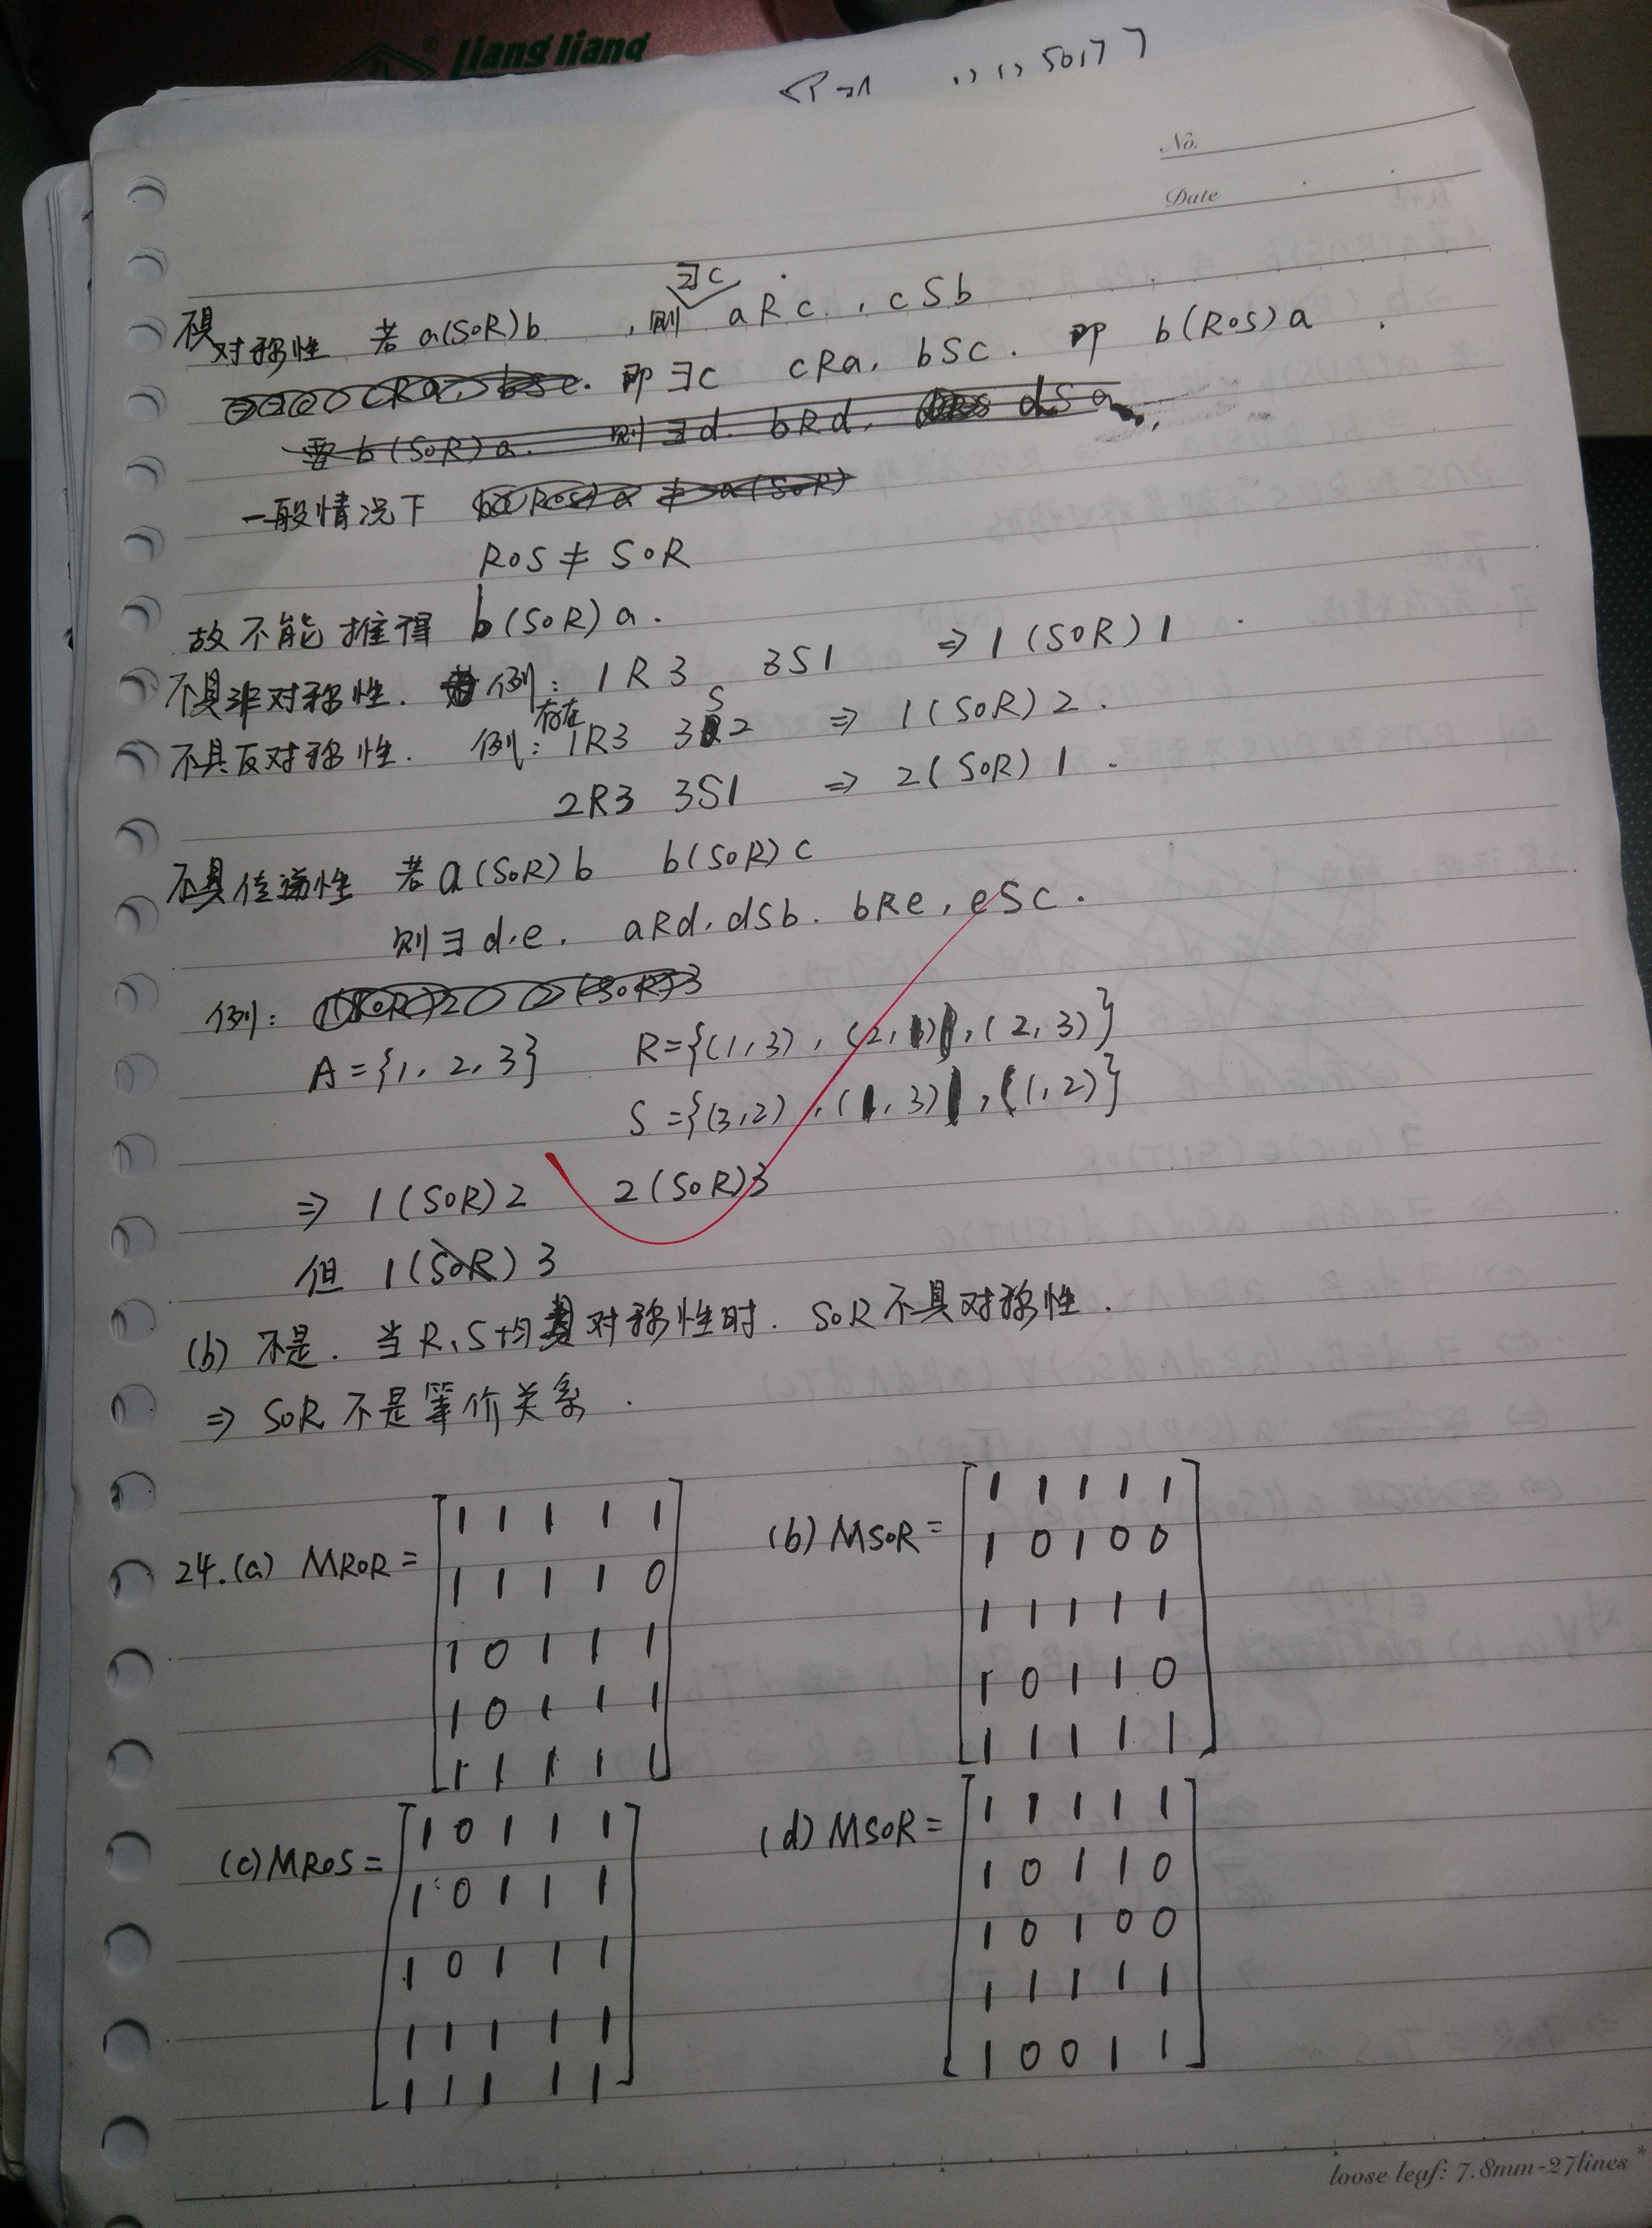 liang liang
No.
Date
∃c
不具对称性 若 a(S∘R)b , 则 aRc, cSb
即 ∃c cRa, bSc. 即 b(R∘S)a
要 b(S∘R)a. 则∃d. bRd, dSa
一般情况下
R∘S ≠ S∘R
故不能推得 b(S∘R)a.
不具非对称性. 例: 1R3 3S1 ⇒ 1(S∘R)1
不具反对称性. 例: 存在 1R3 3S2 ⇒ 1(S∘R)2.
2R3 3S1 ⇒ 2(S∘R)1.
不具传递性 若a(S∘R)b b(S∘R)c
则∃d,e. aRd, dSb. bRe, eSc.
例:
A={1, 2, 3} R={(1,3), (2,1), (2,3)}
S={(3,2), (1,3), (1,2)}
⇒ 1(S∘R)2 2(S∘R)3
但 1(S∘R)3
(b) 不是. 当R,S均具对称性时. S∘R不具对称性.
⇒ S∘R 不是等价关系.
24.(a) MR∘R =
1 1 1 1 1
1 1 1 1 0
1 0 1 1 1
1 0 1 1 1
1 1 1 1 1
(b) MS∘R =
1 1 1 1 1
1 0 1 0 0
1 1 1 1 1
1 0 1 1 0
1 1 1 1 1
(c) MR∘S =
1 0 1 1 1
1 0 1 1 1
1 0 1 1 1
1 1 1 1 1
1 1 1 1 1
(d) MS∘R =
1 1 1 1 1
1 0 1 1 0
1 0 1 0 0
1 1 1 1 1
1 0 0 1 1
loose leaf: 7.8mm-27lines